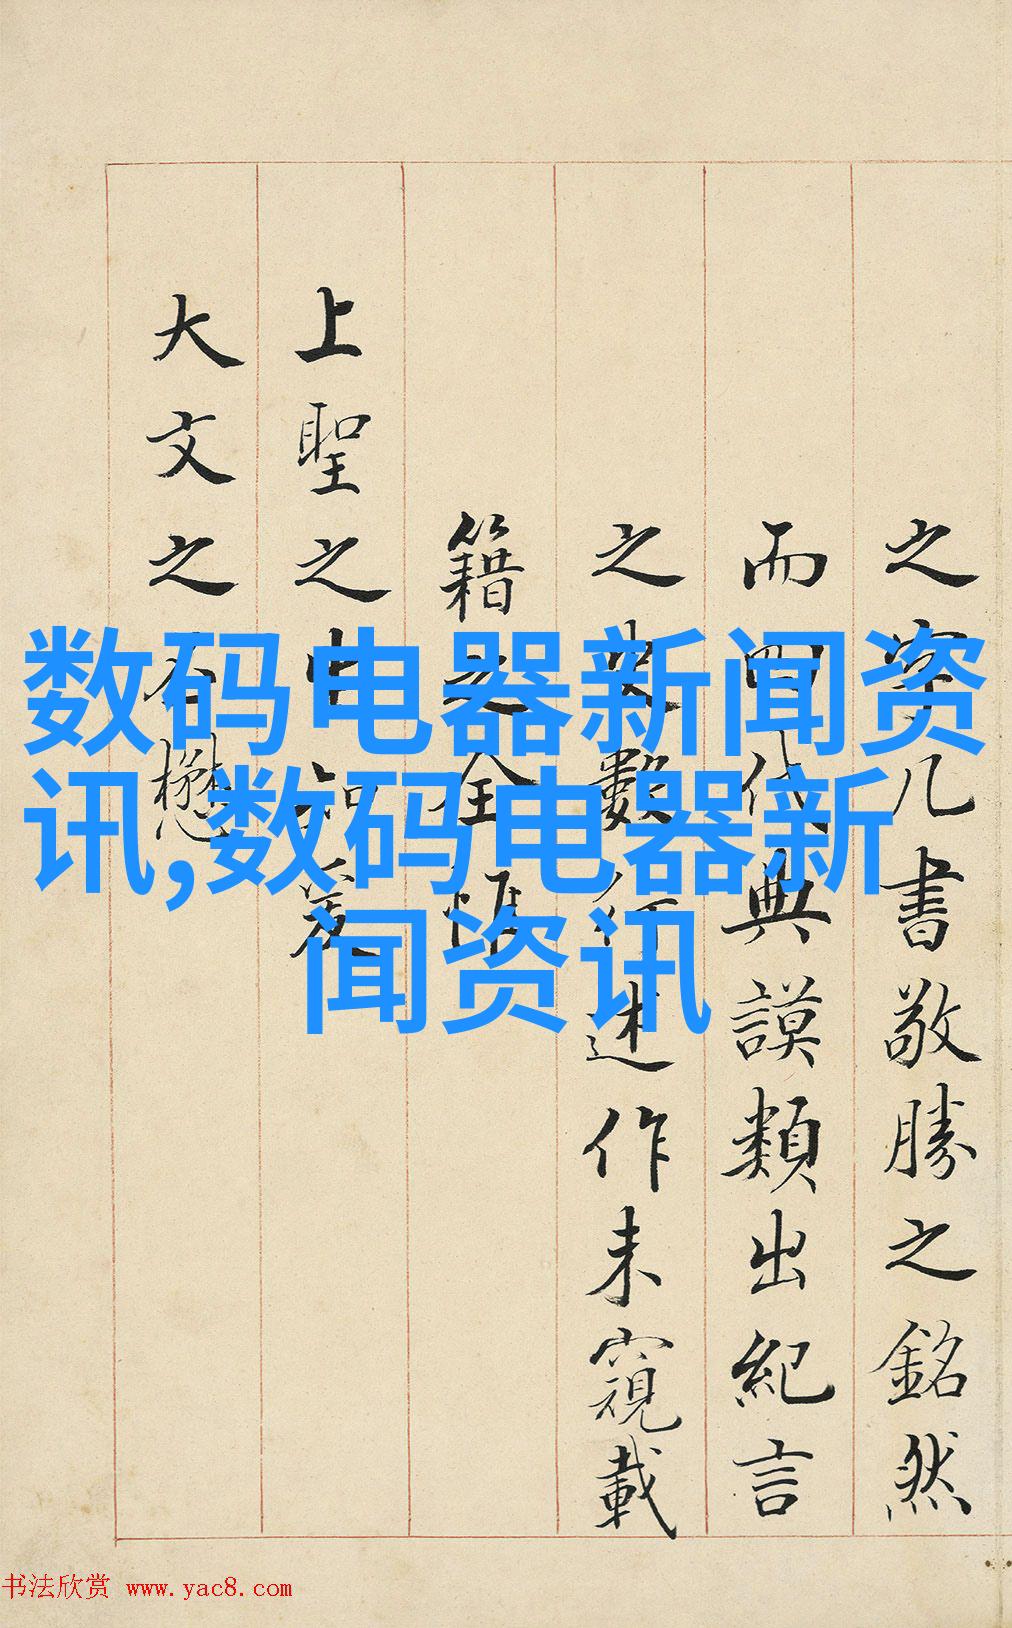 之字几書敬勝之銘然
而四代典謨類出紀言
之史數行述作未窺載
籍之全
上聖之中
大文之
数码电器新闻资
讯,数码电器新
闻资讯
书法欣赏 www.yac8.com